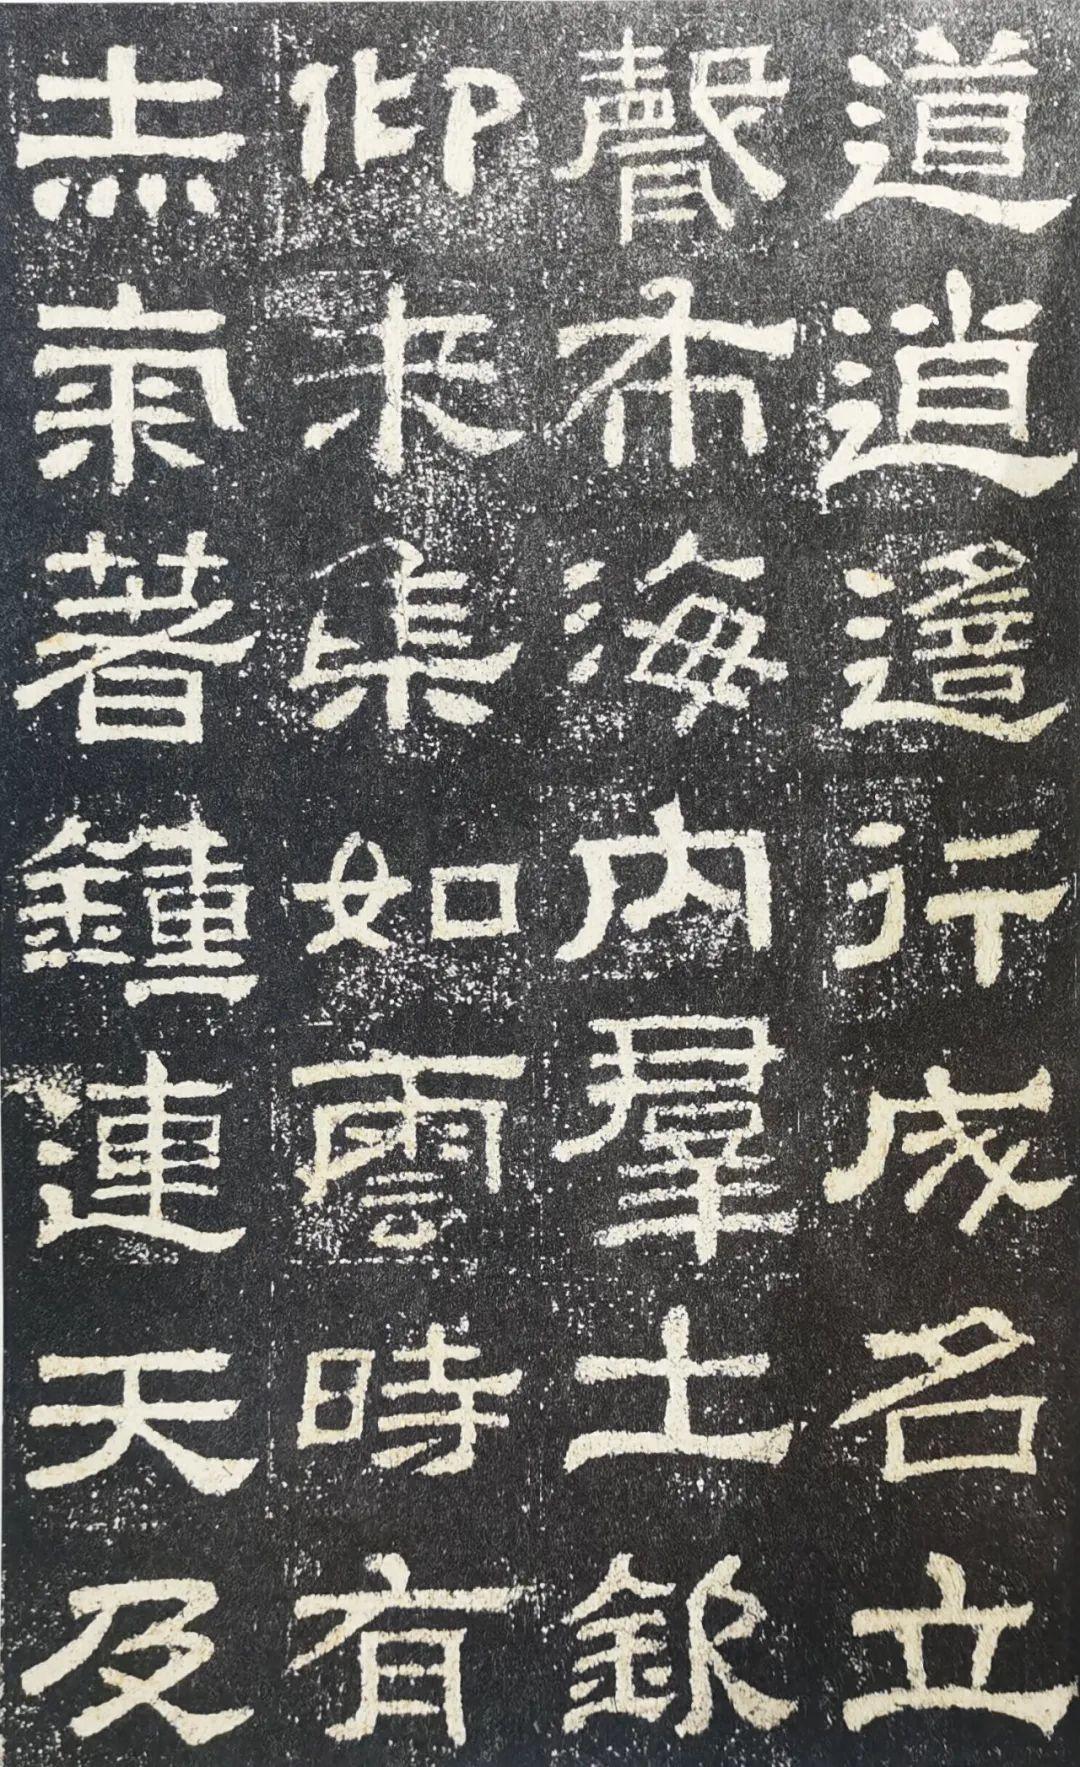 道逍遙行成名立
聲布海内羣士欽
仰来集如雲時有
赤氣著鍾連天及